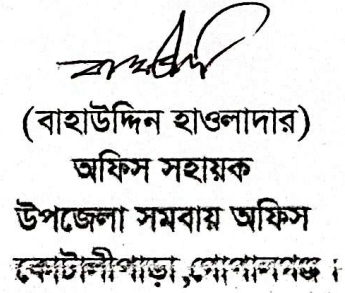 (বাহাউদ্দিন হাওলাদার)
অফিস সহায়ক
উপজেলা সমবায় অফিস
কোটালীপাড়া,গোপালগঞ্জ।